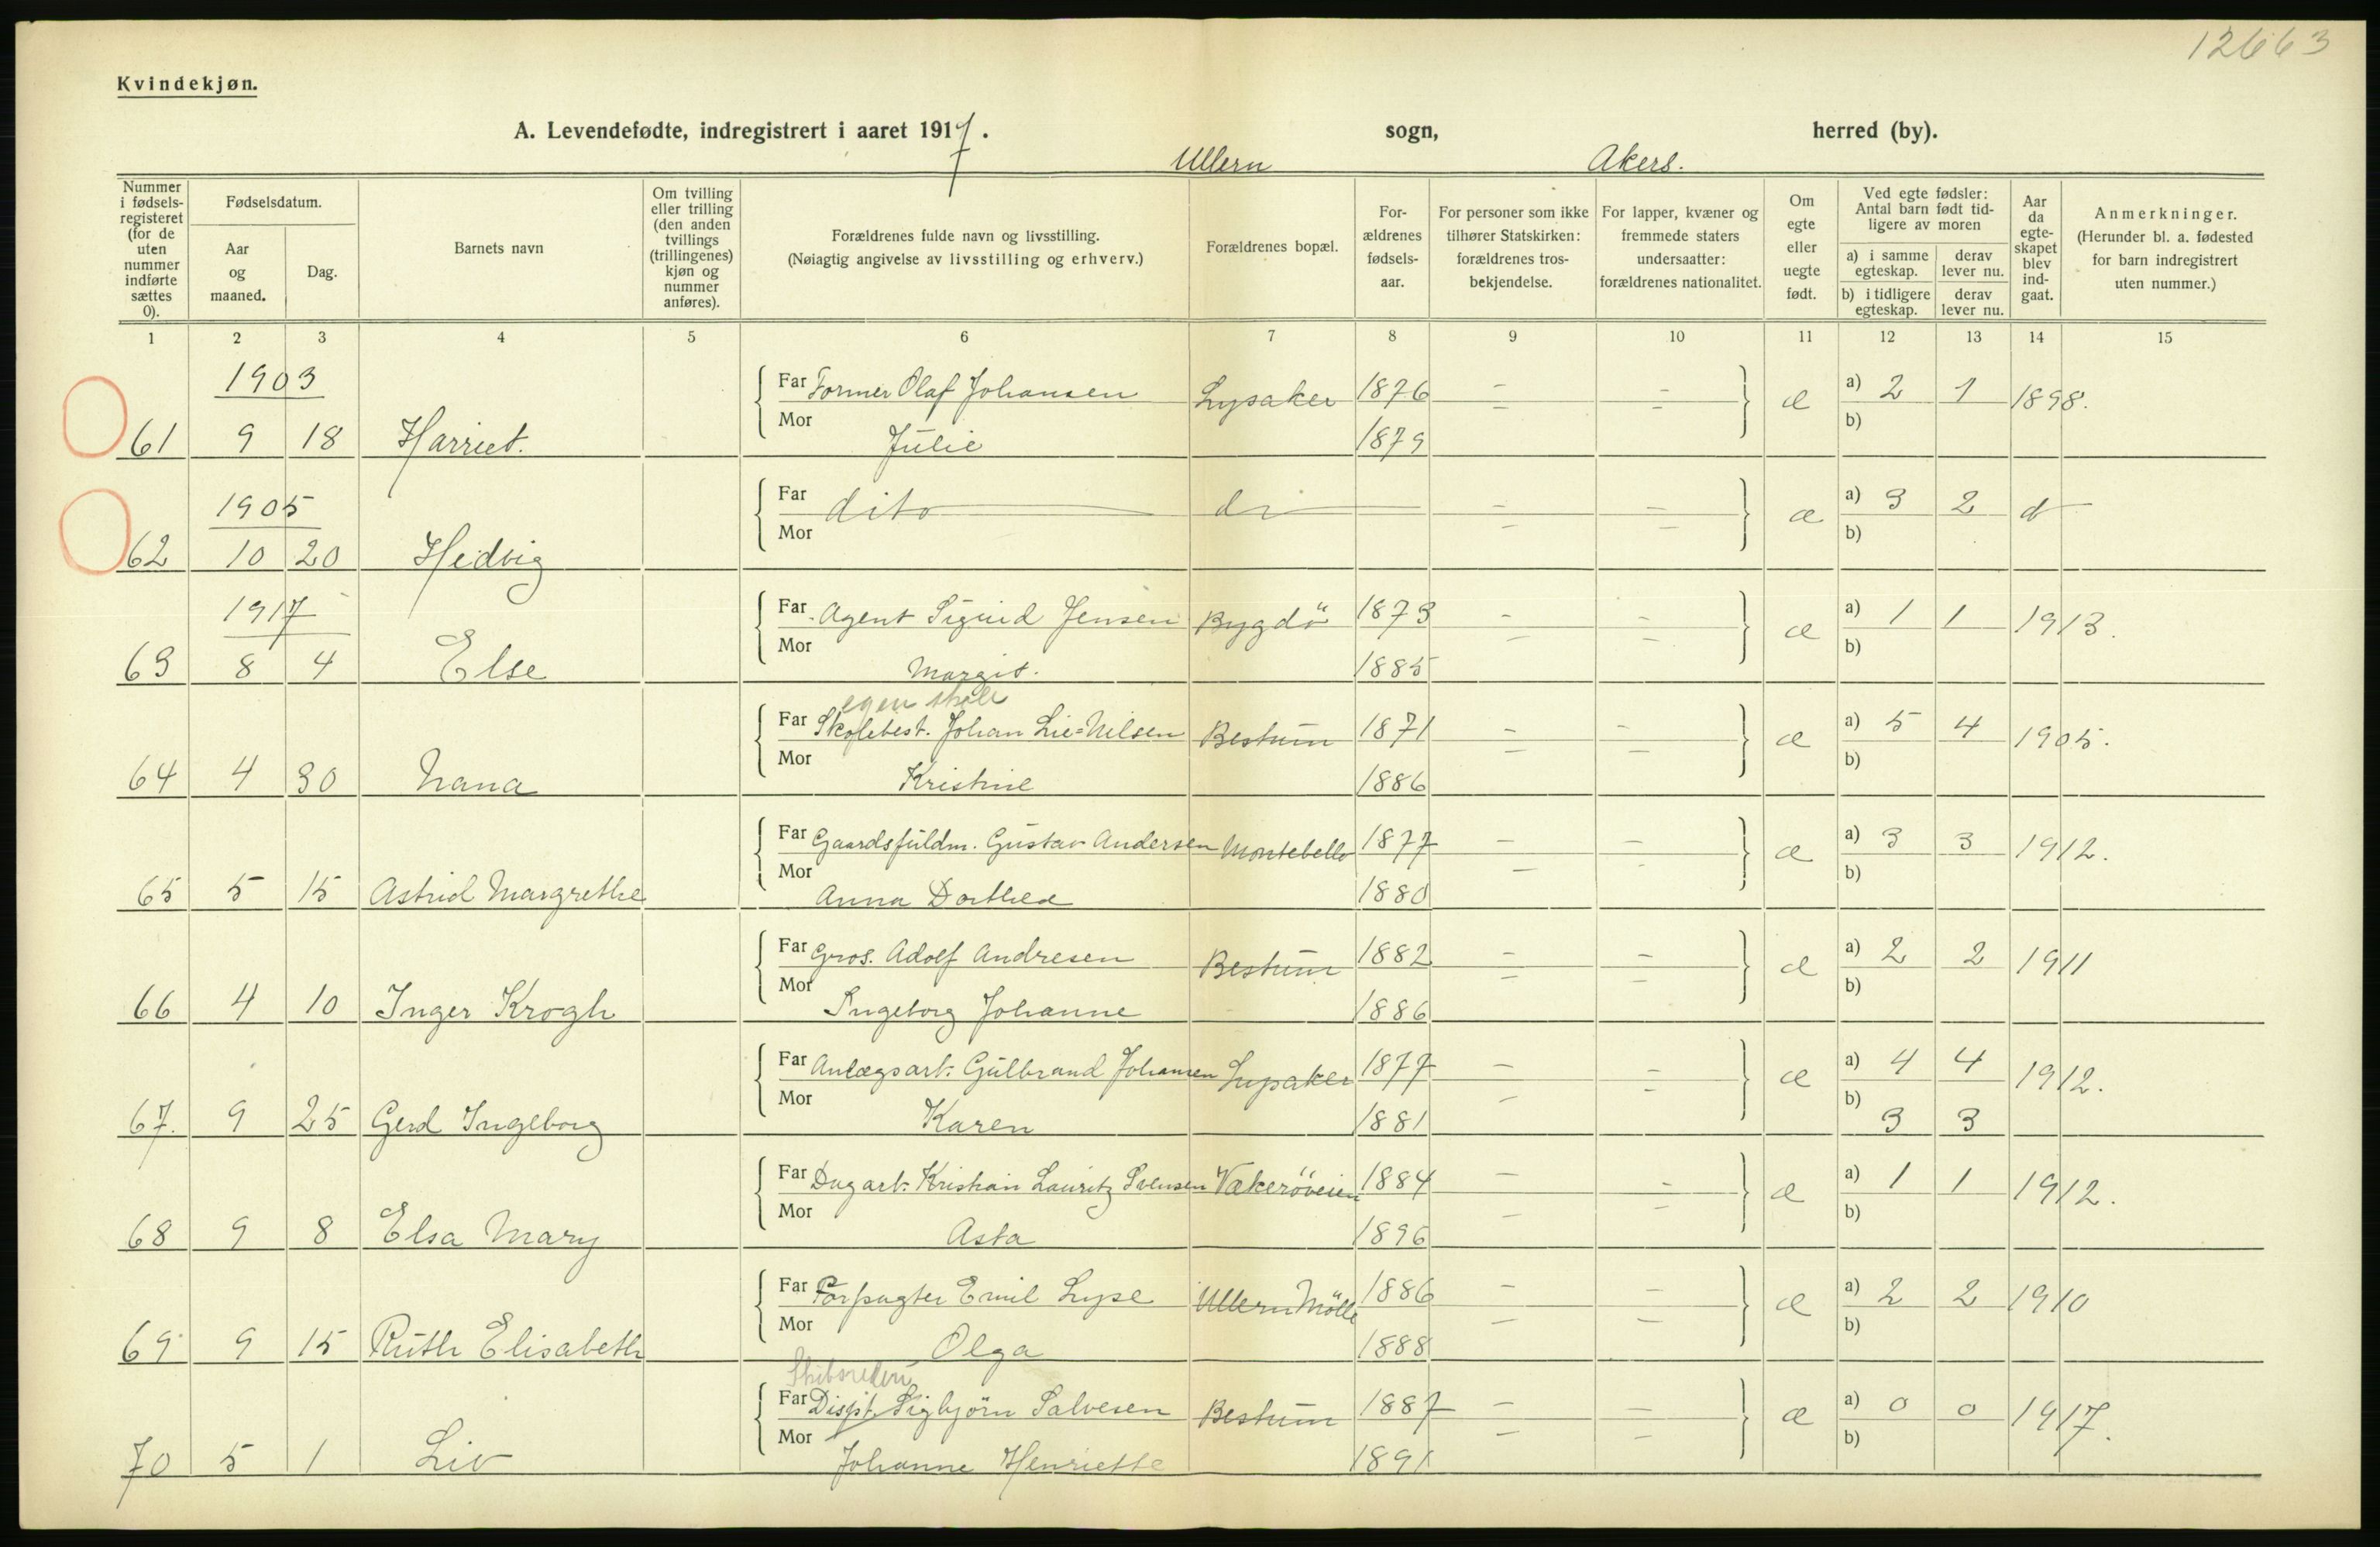 12663
Kvindekjøn.
A. Levendefødte, indregistrert i aaret 1917. Ullern sogn, Akers. herred (by).
Nummer i fødselsregisteret (for de uten nummer indførte sættes 0).
Fødselsdatum.
Aar og maaned.
Dag.
Barnets navn
Om tvilling eller trilling (den anden tvillings (trillingenes) kjøn og nummer anføres).
Forældrenes fulde navn og livsstilling.
(Nøiagtig angivelse av livsstilling og erhverv.)
Forældrenes bopæl.
For-ældrenes fødsels-aar.
For personer som ikke tilhører Statskirken: forældrenes tros-bekjendelse.
For lapper, kvæner og fremmede staters undersaatter: forældrenes nationalitet.
Om egte eller uegte født.
Ved egte fødsler: Antal barn født tid-ligere av moren
a) i samme egteskap. derav lever nu.
b) i tidligere egteskap. derav lever nu.
Aar da egte-skapet blev ind-gaat.
Anmerkninger.
(Herunder bl. a. fødested for barn indregistrert uten nummer.)
1 2 3 4 5 6 7 8 9 10 11 12 13 14 15
1903 Far Former Olaf Johansen Lysaker 1876 – – æ a) 2 1 1898.
61 9 18 Harriet. Mor Julie 1879 – – b)
1905 Far dito do – – æ a) 3 2 d
62 10 20 Hedvig Mor – – b)
1917 Far Agent Sigurd Jensen Bygdö 1873 – – æ a) 1 1 1913.
63 8 4 Else Mor Margit. 1885 – – b)
egen skole
Far Skolebest. Johan Lie=Nilsen Bestum 1871 – – æ a) 5 4 1905.
64 4 30 Nana Mor Kristine 1886 – – b)
Far Gaardsfuldm. Gustav Andersen Montebello 1877 – – æ a) 3 3 1912.
65 5 15 Astrid Margrethe Mor Anna Dorthea 1880 – – b)
Far Gros. Adolf Andresen Bestum 1882 – – æ a) 2 2 1911
66 4 10 Inger Krogh Mor Ingeborg Johanne 1886 – – b)
Far Anlægsarb. Gulbrand Johansen Lysaker 1877 – – æ a) 4 4 1912.
67. 9 25 Gerd Ingeborg Mor Karen 1881 – – b) 3 3
Far Dagarb. Kristian Lauritz Svensen Vækeröveien 1884 – – æ a) 1 1 1912.
68 9 8 Elsa Mary Mor Asta 1896 – – b)
Far Forpagter Emil Lyse Ullern Mölle 1886 – – æ a) 2 2 1910
69 9 15 Ruth Elisabeth Mor Olga 1888 – – b)
Skibsrederi
Far Dispt. Sigbjörn Salvesen Bestum 1887 – – æ a) 0 0 1917.
70 5 1 Liv Mor Johanne Henriette 1891 – – b)